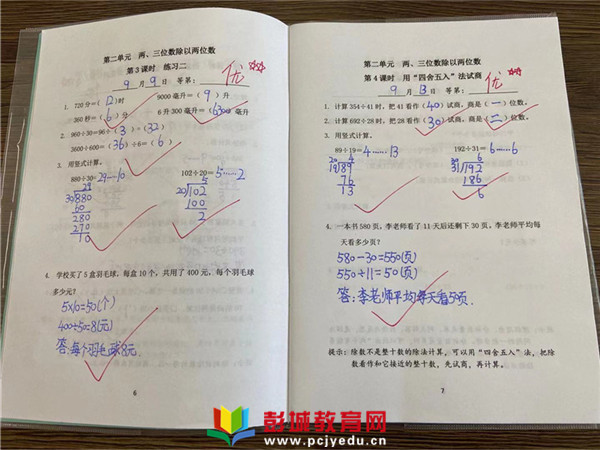 第二单元 两、三位数除以两位数
第3课时 练习二
9月9日 等第: 优
1. 720分=(12)时 9000毫升=(9)升
360秒=(6)分 6升300毫升=(6300)毫升
2. 960÷30=96÷(3)=(32)
3600÷600=(36)÷6=(6)
3. 用竖式计算。
880÷30=29……10 102÷20=5……2
29 5
30)880 20)102
60 100
280 2
270
10
4. 学校买了5盒羽毛球,每盒10个,共用了400元,每个羽毛球
多少元?
5×10=50(个)
400÷50=8(元)
答:每个羽毛球8元.
6
第二单元 两、三位数除以两位数
第4课时 用“四舍五入”法试商
9月13日 等第: 优
1. 计算354÷41时,把41看作(40)试商,商是(一)位数。
2. 计算692÷28时,把28看作(30)试商,商是(二)位数。
3. 用竖式计算。
89÷19=4……13 192÷31=6……6
20 4 30 6
19)89 31)192
76 186
13 6
4. 一本书580页,李老师看了11天后还剩下30页,李老师平均每
天看多少页?
580-30=550(页)
550÷11=50(页)
答:李老师平均每天看50页.
提示:除数不是整十数的除法计算,可以用“四舍五入”法,把除
数看作和它接近的整十数,先试商,再计算。
7
彭城教育网
www.pcjyedu.cn